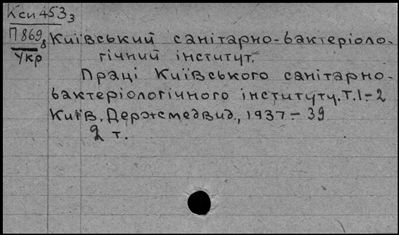 Кси 453з
П869в Київський санітарно-бактеріоло-
Укр гічний інститут.
Праці Київського санітарно-
бактеріологічного інституту. Т.1-2
Київ, Держмедвид., 1937-39
2 т.